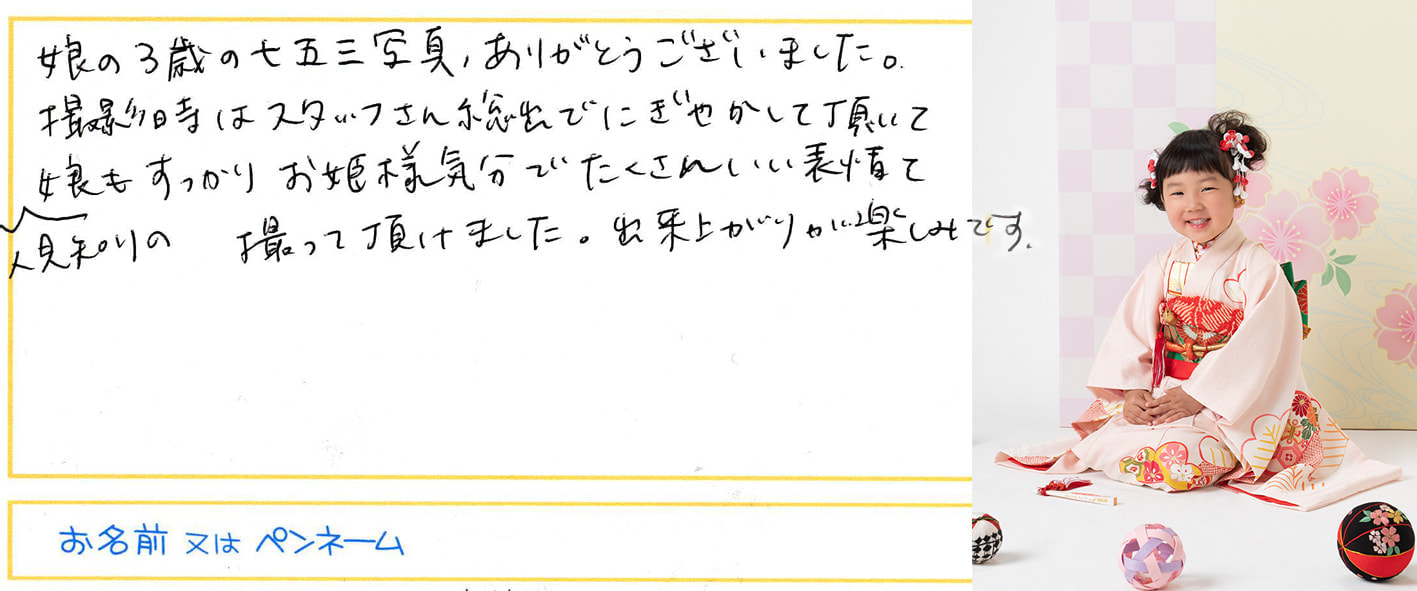 娘の3歳の七五三写真、ありがとうございました。
撮影日時はスタッフさん総出でにぎやかして頂いて
娘もすっかりお姫様気分でたくさんいい表情で
人見知りの 撮って頂けました。出来上がりが楽しみです。
お名前 又は ペンネーム